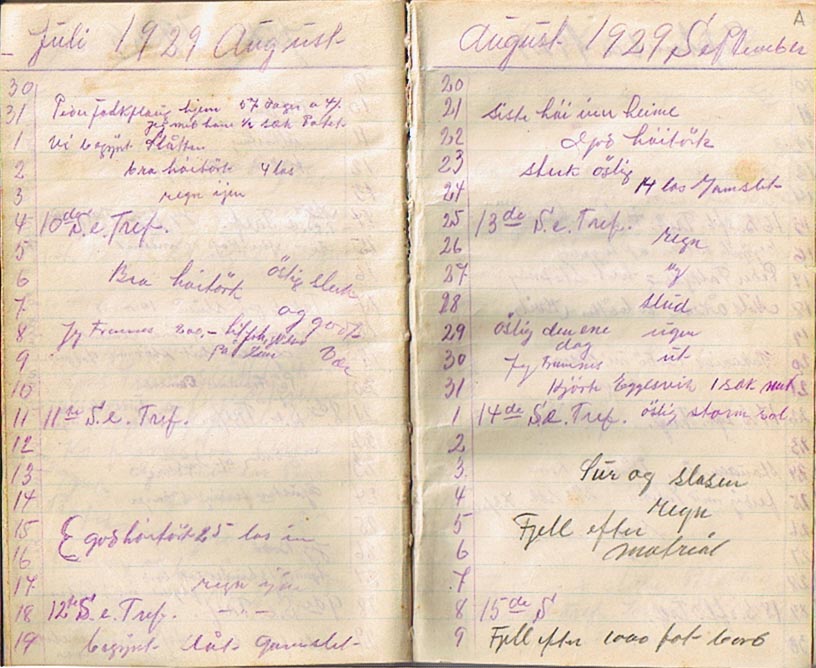 Juli 1929 August
30
31 Peder hjem 57 dager a 4/-
Jeg sæk Potet
1 Vi begynt Slåtten
2 bra höitörk 4 las
3 regn ijen
4 10de S. e. Tref.
5
6 Bra höitörk östlig sterk
7 og godt
8 Jeg Framnes 200,-
9 Vær
10
11 11te S. e. Tref.
12
13
14
15 god höitörk 25 las in
16
17 regn ijen
18 12te S. e. Tref. - -
19 begynt slåt Gamslet
A
August 1929 September
20
21 siste höi inn heime
22 God höitörk
23 sterk östlig
24 14 las Gamslet
25 13de S. e. Tref.
26 regn
27 og
28 slud
29 östlig den ene ugen
dag
30 Jeg Framnes ut
31 Hjört Eggesvik 1 sæk mel
1 14de S. e. Tref. östlig storm
2
3 Sur og slasen
4 regn
5 Fjell efter
6 matriál
7
8 15de S
9 Fjell efter 1000 fot bord